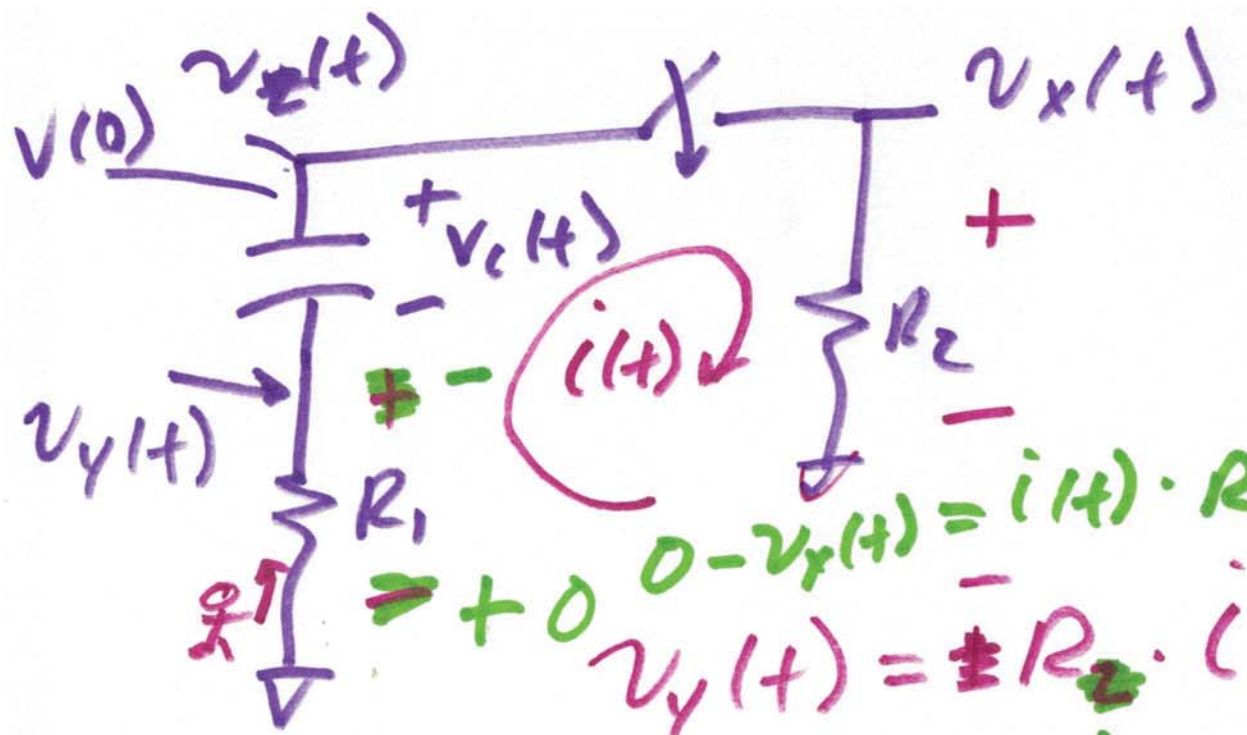 v_z(t)
v(0)
v_x(t)
+
v_c(t)
+
-
i(t)
R_2
-
-
v_y(t)
R_1
+ 0
0 - v_y(t) = i(t) · R
-
v_y(t) = R · i